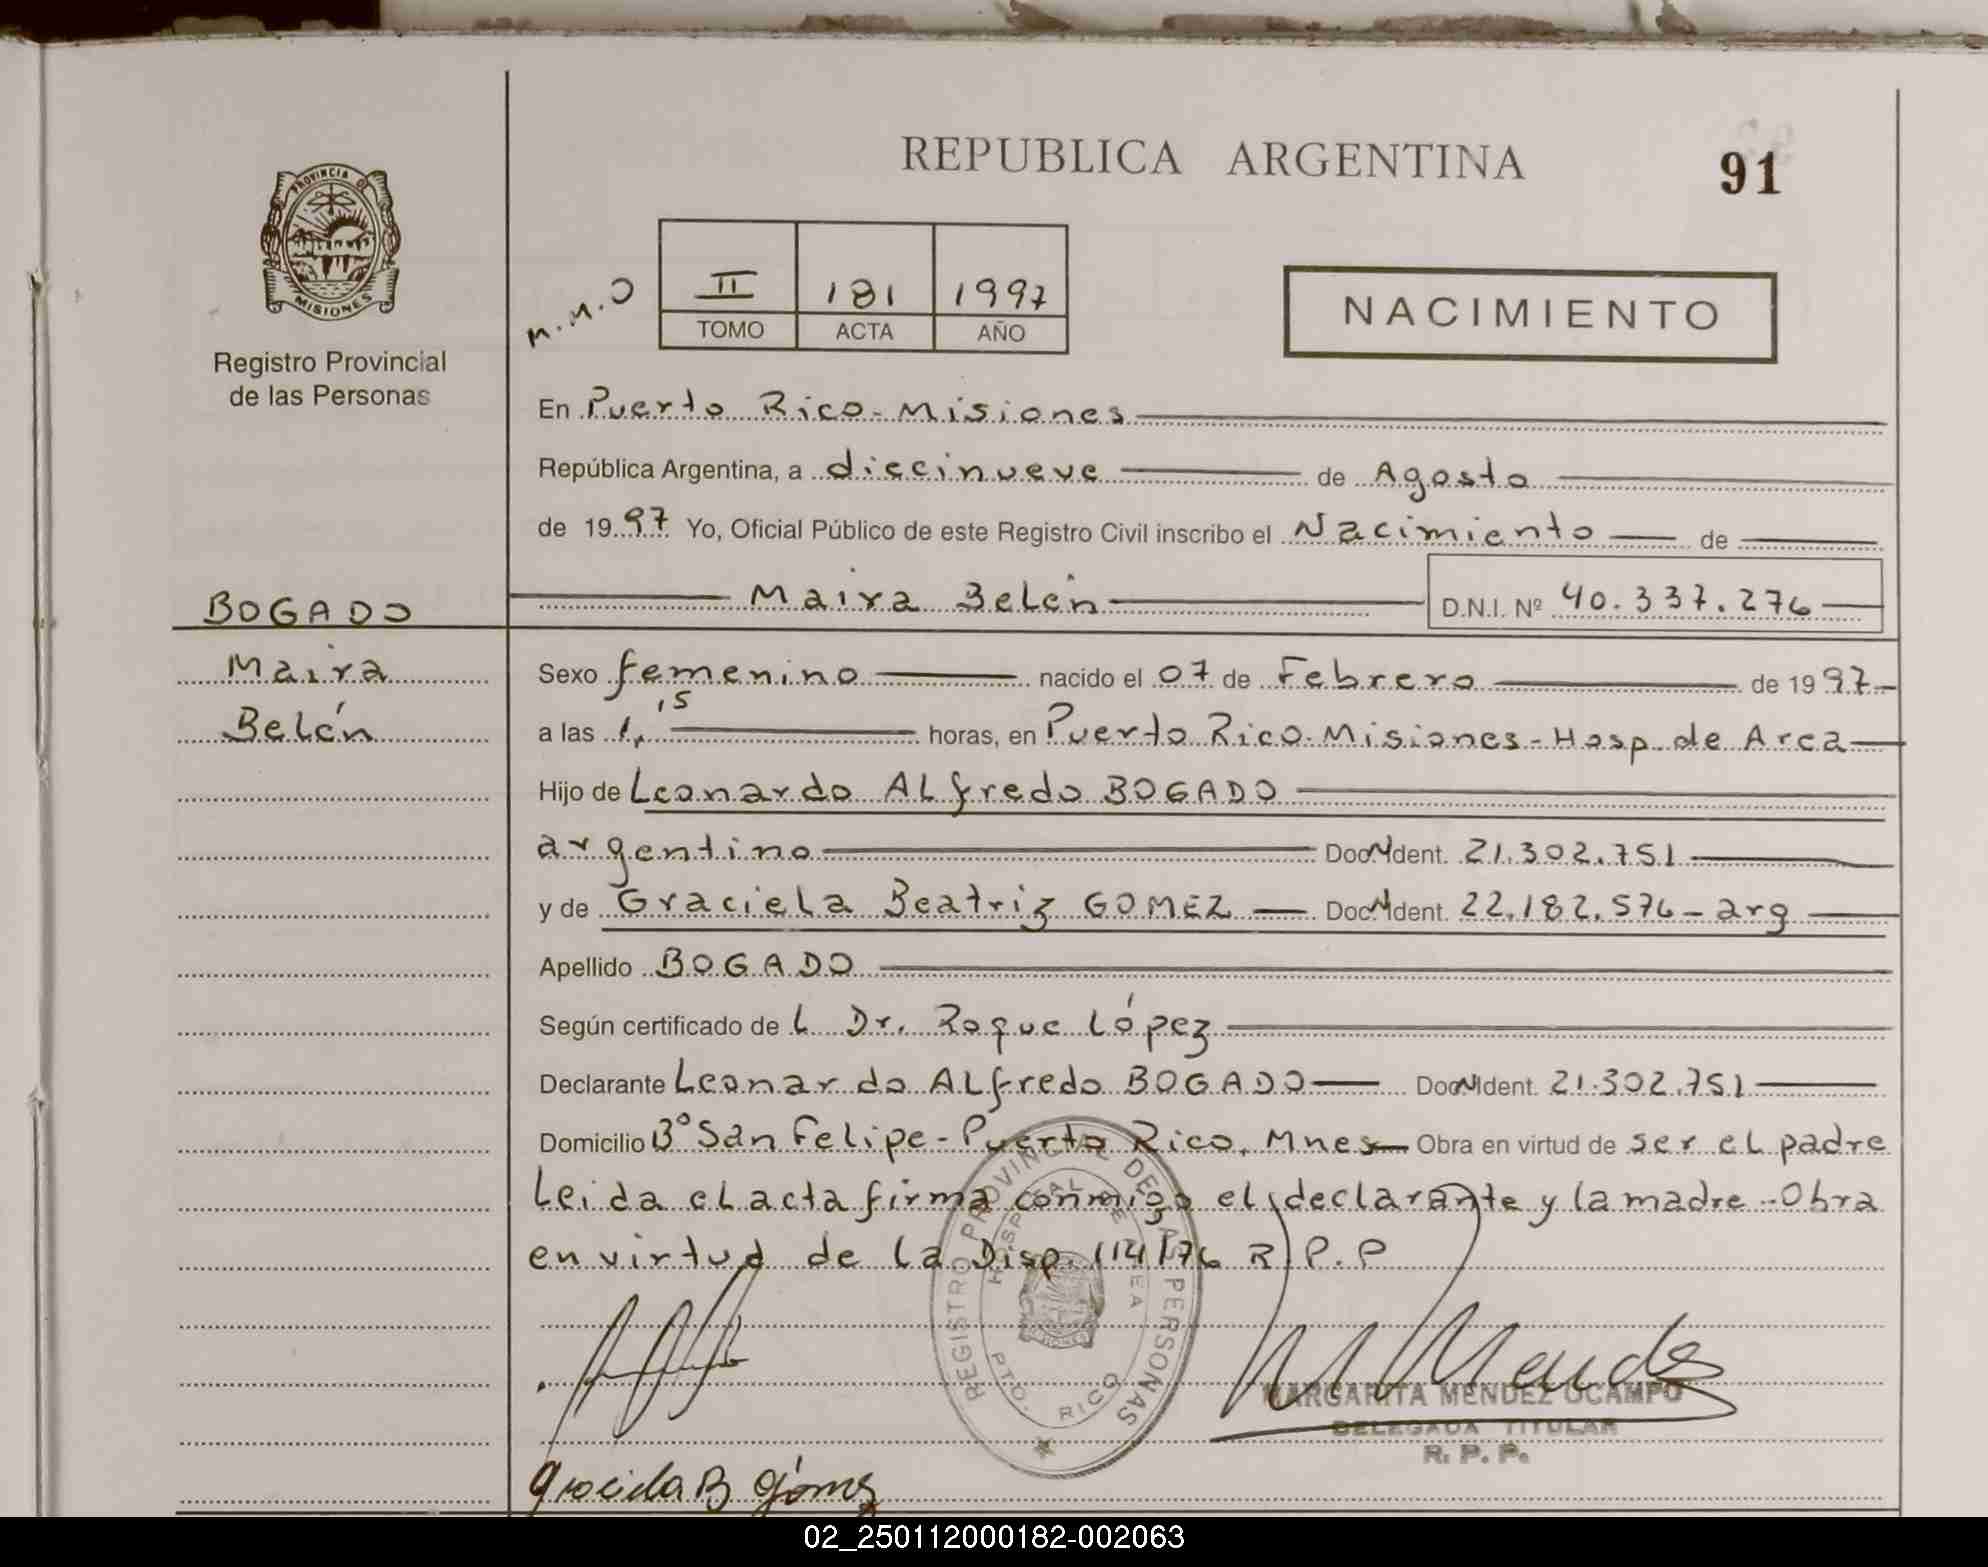 REPUBLICA ARGENTINA
91
PROVINCIA
MISIONES
Registro Provincial
de las Personas
M.M.O
II 181 1997
TOMO ACTA AÑO
NACIMIENTO
En Puerto Rico - Misiones
República Argentina, a diecinueve de Agosto
de 1997 Yo, Oficial Público de este Registro Civil inscribo el Nacimiento de
Maira Belén D.N.I. Nº 40.337.276
BOGADO
Maira
Belén
Sexo femenino nacido el 07 de Febrero de 1997
a las 1,15 horas, en Puerto Rico - Misiones - Hosp. de Area
Hijo de Leonardo ALfredo BOGADO
argentino Doc N Ident. 21.302.751
y de Graciela Beatriz GOMEZ Doc N Ident. 22.182.576 - arg
Apellido BOGADO
Según certificado de L Dr. Roque López
Declarante Leonardo ALfredo BOGADO Doc N Ident. 21.302.751
Domicilio Bº San Felipe - Puerto Rico, Mnes Obra en virtud de ser el padre
Leida el acta firma conmigo el declarante y la madre - Obra
en virtud de la Disp. 114/76 R.P.P
REGISTRO PROVINCIAL DE LAS PERSONAS
HOSPITAL DE AREA
PTO. RICO
M Mendez
MARGARITA MENDEZ OCAMPO
DELEGADA TITULAR
R. P. P.
Graciela B Gómez
02_250112000182-002063